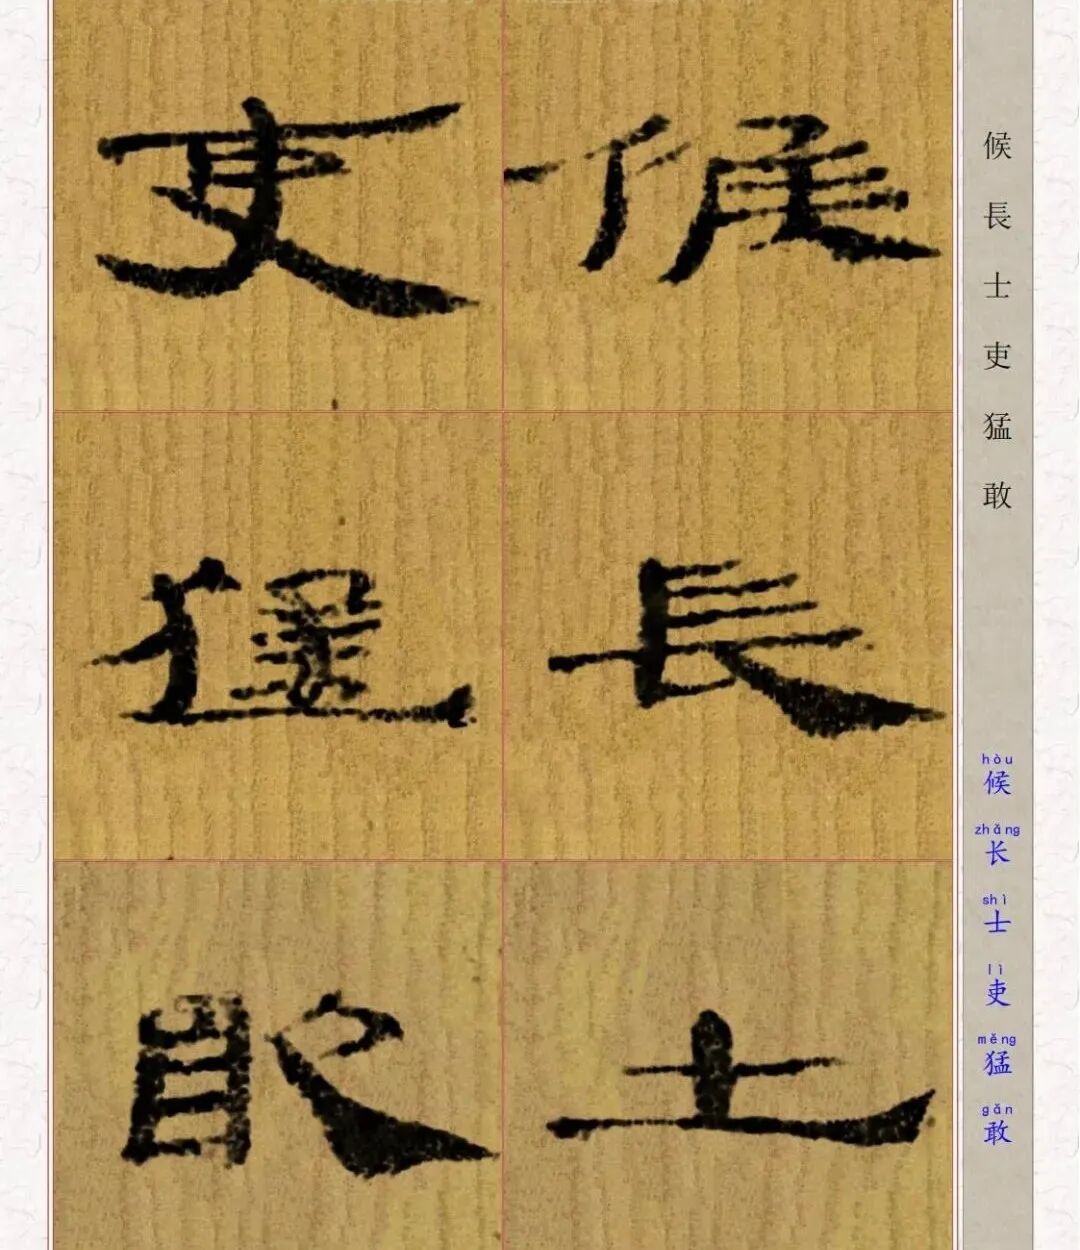 候長士
吏猛敢
候長士吏猛敢
hòu zhǎng shì lì měng gǎn
候长士吏猛敢